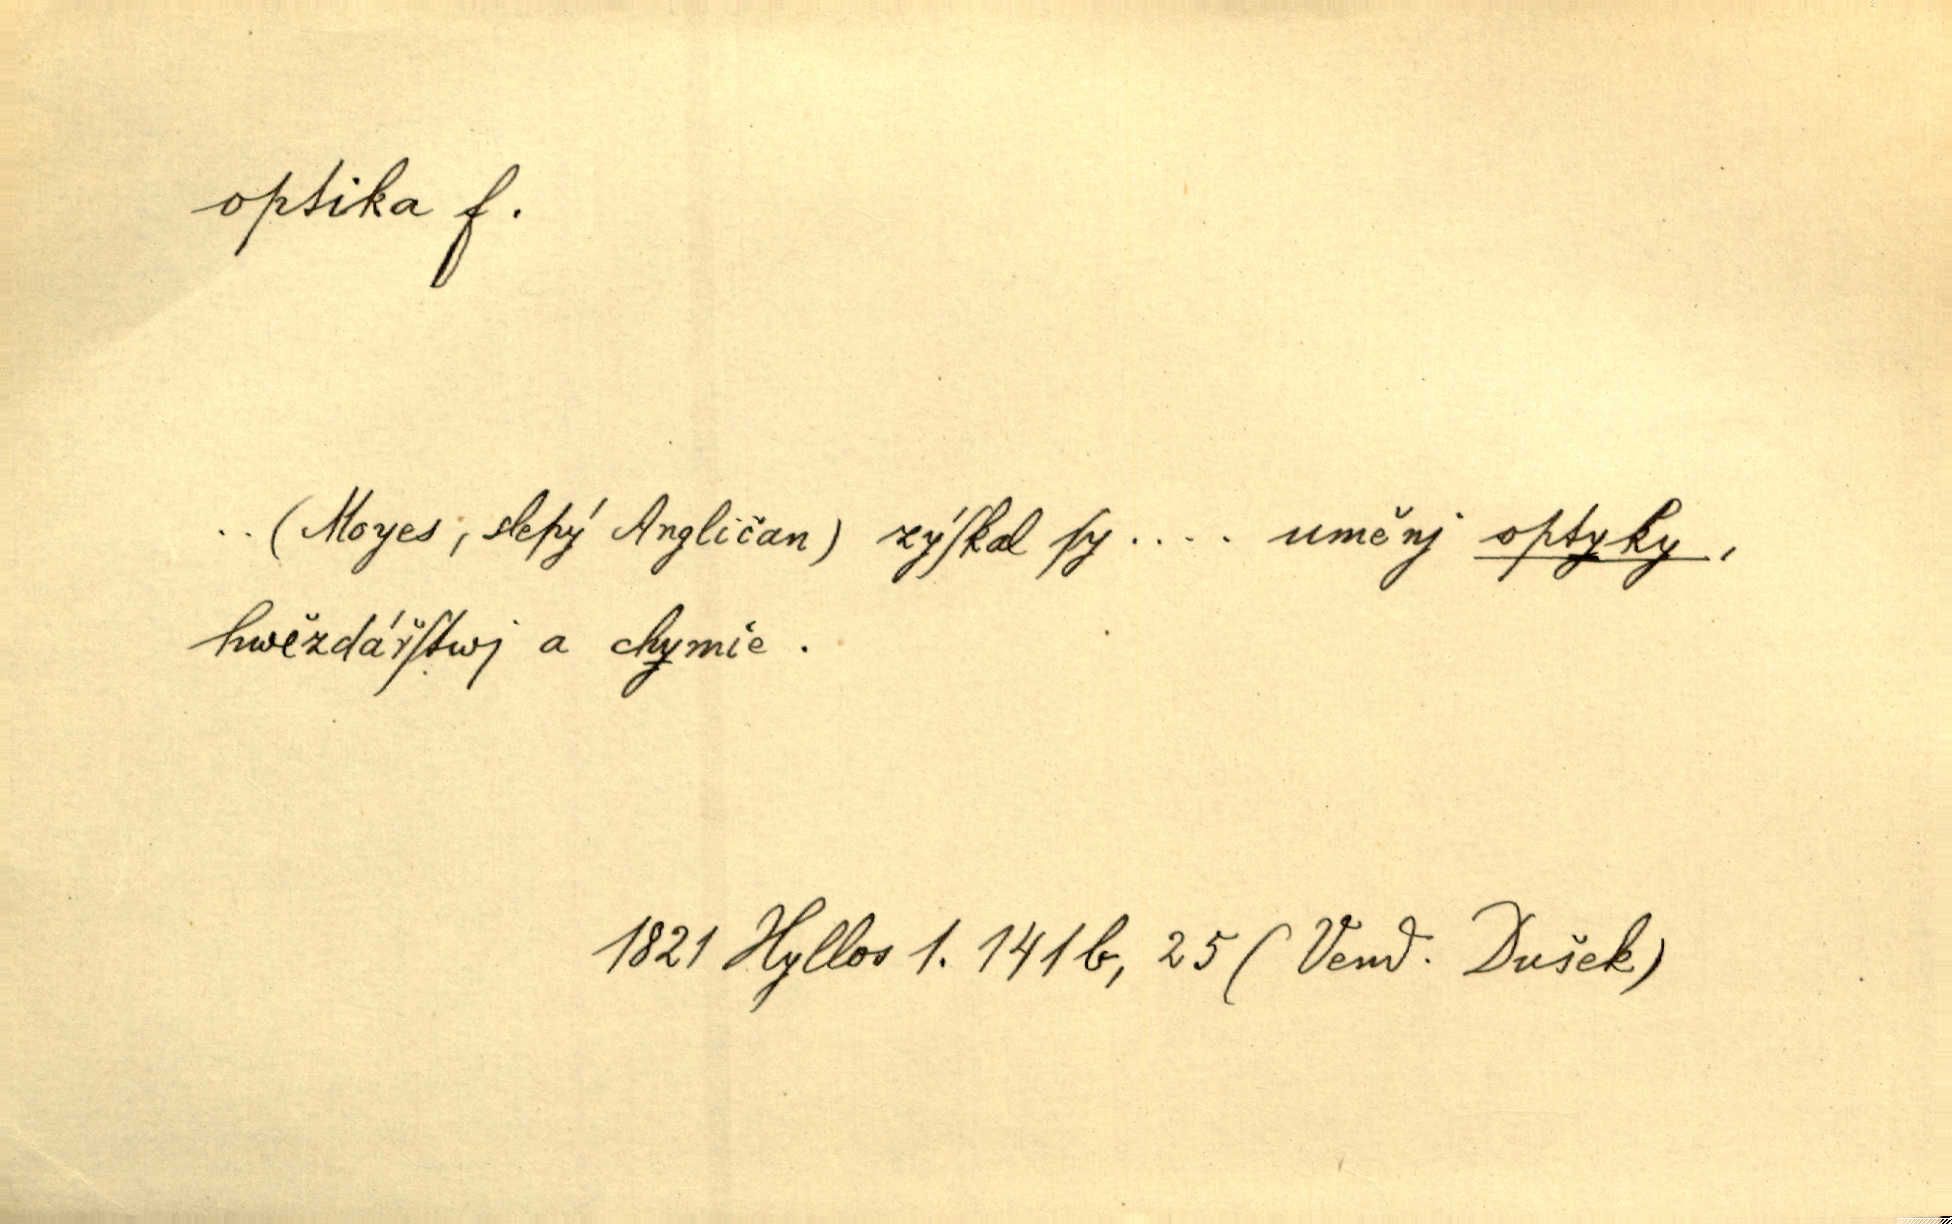 optika f.
.. (Moyes, slepý Angličan) zýſkal ſy .... uměnj optyky,
hwězdářſtwj a chymie.
1821 Hyllos 1. 141b, 25 (Vend. Dušek)